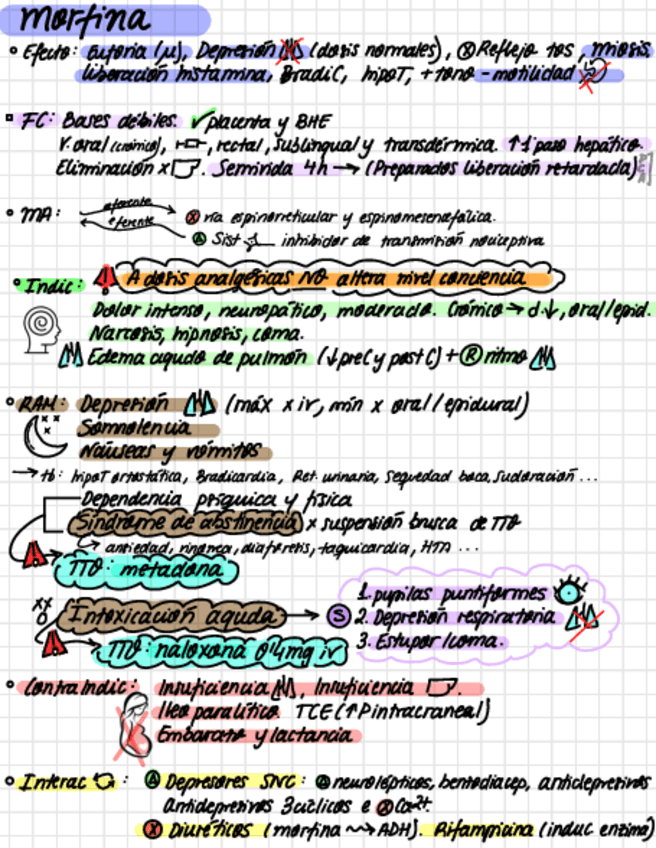 Morfina
Efecto: Euforia (μ), Depresión (dosis normales), ⓧ Reflejo tos, miosis
liberación histamina, BradiC, hipoT, + tono - motilidad
FC: Bases débiles. ✓ placenta y BHE
V. oral (crónico), , rectal, sublingual y transdérmica. ↑ 1º paso hepático.
Eliminación x . Semivida 4h → (Preparados liberación retardada)
MA: aferente
eferente
ⓧ vía espinorreticular y espinomesencefálica.
Ⓐ Sist inhibidor de transmisión nociceptiva
Indic: A dosis analgésicas NO altera nivel conciencia
Dolor intenso, neuropático, moderado. Crónico → d↓, oral/epid.
Narcosis, hipnosis, coma.
Edema agudo de pulmón (↓preC y postC) + Ⓡ ritmo
RAM: Depresión (máx x iv, mín x oral/epidural)
Somnolencia
Náuseas y vómitos
→ tb: hipoT ortostática, Bradicardia, Ret. urinaria, Sequedad boca, sudoración ...
Dependencia psíquica y física
Síndrome de abstinencia x suspensión brusca de TTO
→ ansiedad, rinorrea, diaforesis, taquicardia, HTA ...
TTO: metadona
Intoxicación aguda → Ⓢ
1. pupilas puntiformes
2. Depresión respiratoria
3. Estupor/coma.
TTO: naloxona 0'4mg iv
ContraIndic: Insuficiencia , Insuficiencia .
Íleo paralítico TCE (↑Pintracraneal)
Embarazo y lactancia
Interac: Ⓐ Depresores SNC: Ⓐ neurolépticos, benzodiacep, antidepresivos
Antidepresivos 3cíclicos e ⓧ Ca²⁺.
ⓧ Diuréticos (morfina ⇝ ADH). Rifampicina (induc enzima)